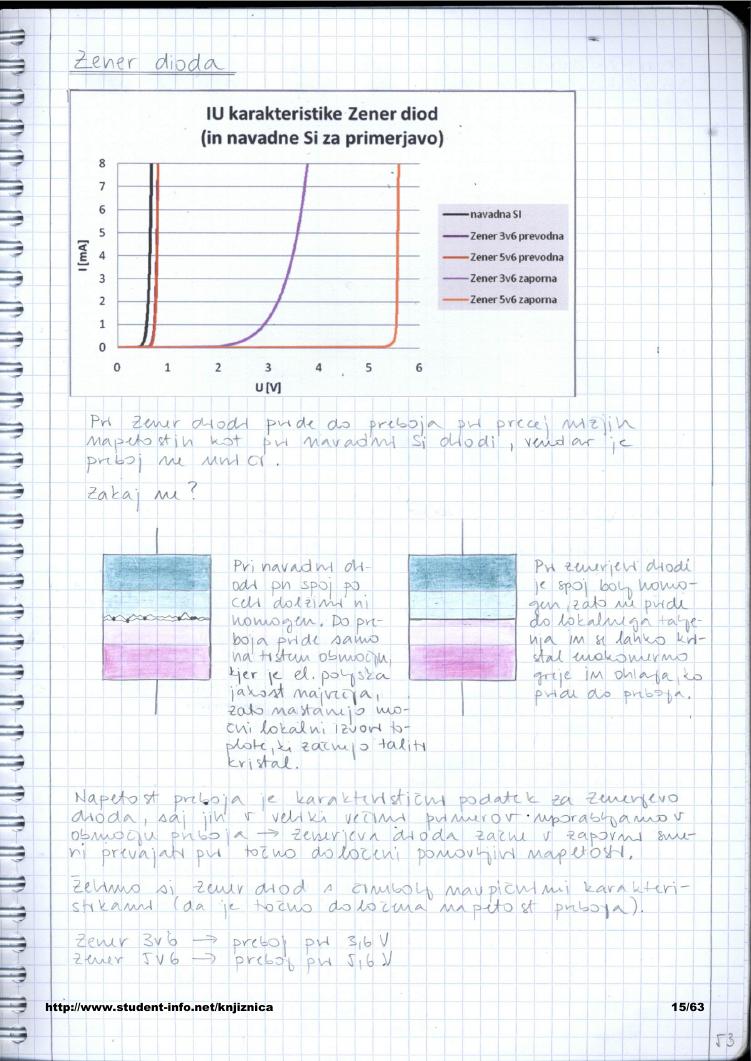 Zener dioda
IU karakteristike Zener diod
(in navadne Si za primerjavo)
8
7
6
5
4
3
2
1
0
I [mA]
0 1 2 3 4 5 6
U [V]
navadna SI
Zener 3v6 prevodna
Zener 5v6 prevodna
Zener 3v6 zaporna
Zener 5v6 zaporna
Pri Zener diodi pride do preboja pri precej nižjih
napetostih kot pri navadni Si diodi, vendar je
preboj ne uniči.
Zakaj ne?
Pri navadni di-
odi pn spoj po
celi dolžini ni
homogen. Do pre-
boja pride samo
na tistem območju,
kjer je el. poljska
jakost največja,
zato nastanejo mo-
čni lokalni izvori to-
plote, ki začnejo taliti
kristal.
Pri zenerjevi diodi
je spoj bolj homo-
gen, zato ne pride
do lokalnega talje-
nja in se lahko kri-
stal enakomerno
greje in ohlaja, ko
pride do preboja.
Napetost preboja je karakteristični podatek za Zenerjevo
diodo, saj jih v veliki večini primerov uporabljamo v
območju preboja → zenerjeva dioda začne v zaporni sme-
ri prevajati pri točno določeni ponovljivi napetosti.
Želimo si zener diod s čimbolj navpičnimi karakteri-
stikami (da je točno določena napetost preboja).
Zener 3v6 → preboj pri 3,6 V
Zener 5v6 → preboj pri 5,6 V
http://www.student-info.net/knjiznica
15/63
53